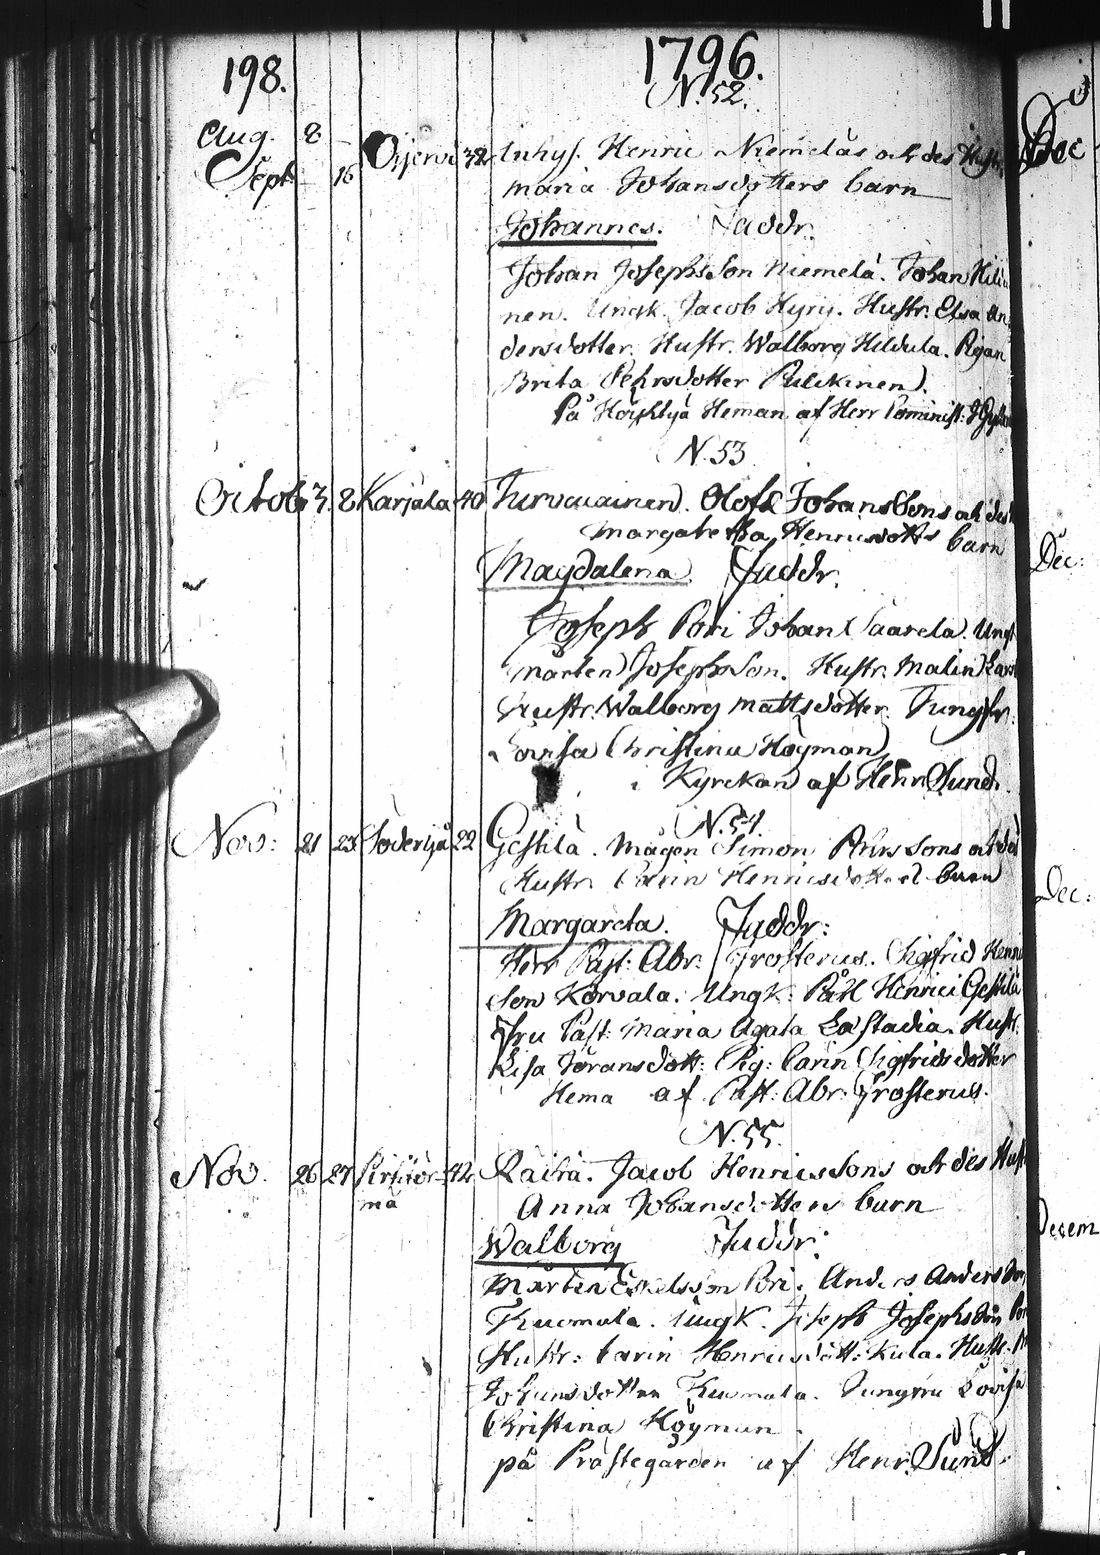 198.
1796.
N. 52.
Aug. 8
Sept. 16 Oijervi 38 Inhys. Henric Niemeläs och des Hustr
Maria Johansdotters barn
Johannes. Faddr:
Johan Josephsson Niemelä. Johan
nen. Ungk. Jacob Hyry. Hustr. Elsa An
dersdotter. Hustr. Walborg Hildula. Pigan
Brita Pehrsdotter Pulckinen.
På Heman af Herr Comminist:
N. 53
Octob 3. 8 Karjala 40 Olof Johanssons och des
Margaretha Henricsdotts barn
Magdalena. Faddr.
Joseph Pori Johan Saarela. Ungk
Mårten Josephsson. Hustr. Malin
Hustr. Walborg Mattsdotter. Jungfr.
Lovisa Christina Höyman
i Kyrckan af Henr Sund.
N. 54.
Nov: 21 23 Soderijå 22 Gestilä. Mågen Simon Pehrssons och des
Hustr. Carin Henricsdotters barn
Margareta. Faddr:
Herr Past: Abr: Frosterus. Sigfrid Henric
Son Korvala. Ungk: Påhl Henrici Gestilä
Fru Past: Maria Agata Læstadia. Hust:
Lisa Jöransdott: Pig: Carin Sigfridsdotter
Hema af Past: Abr: Frosterus.
N. 55.
Nov. 26 27 42 Räihä. Jacob Henricssons och des Hust
mä Anna Johansdotters barn
Walborg Faddr:
Mårten Eskelsson Pori. Anders Anders Son
Kuomula. Ungk. Joseph Josephsson
Hustr: Carin Henricsdott: Kula. Hust.
Johansdotter Kuomula. Jungfru Lovisa
Christina Höyman.
på Prästegården af Henr. Sund.
Dec
Dec:
Dec:
Decem